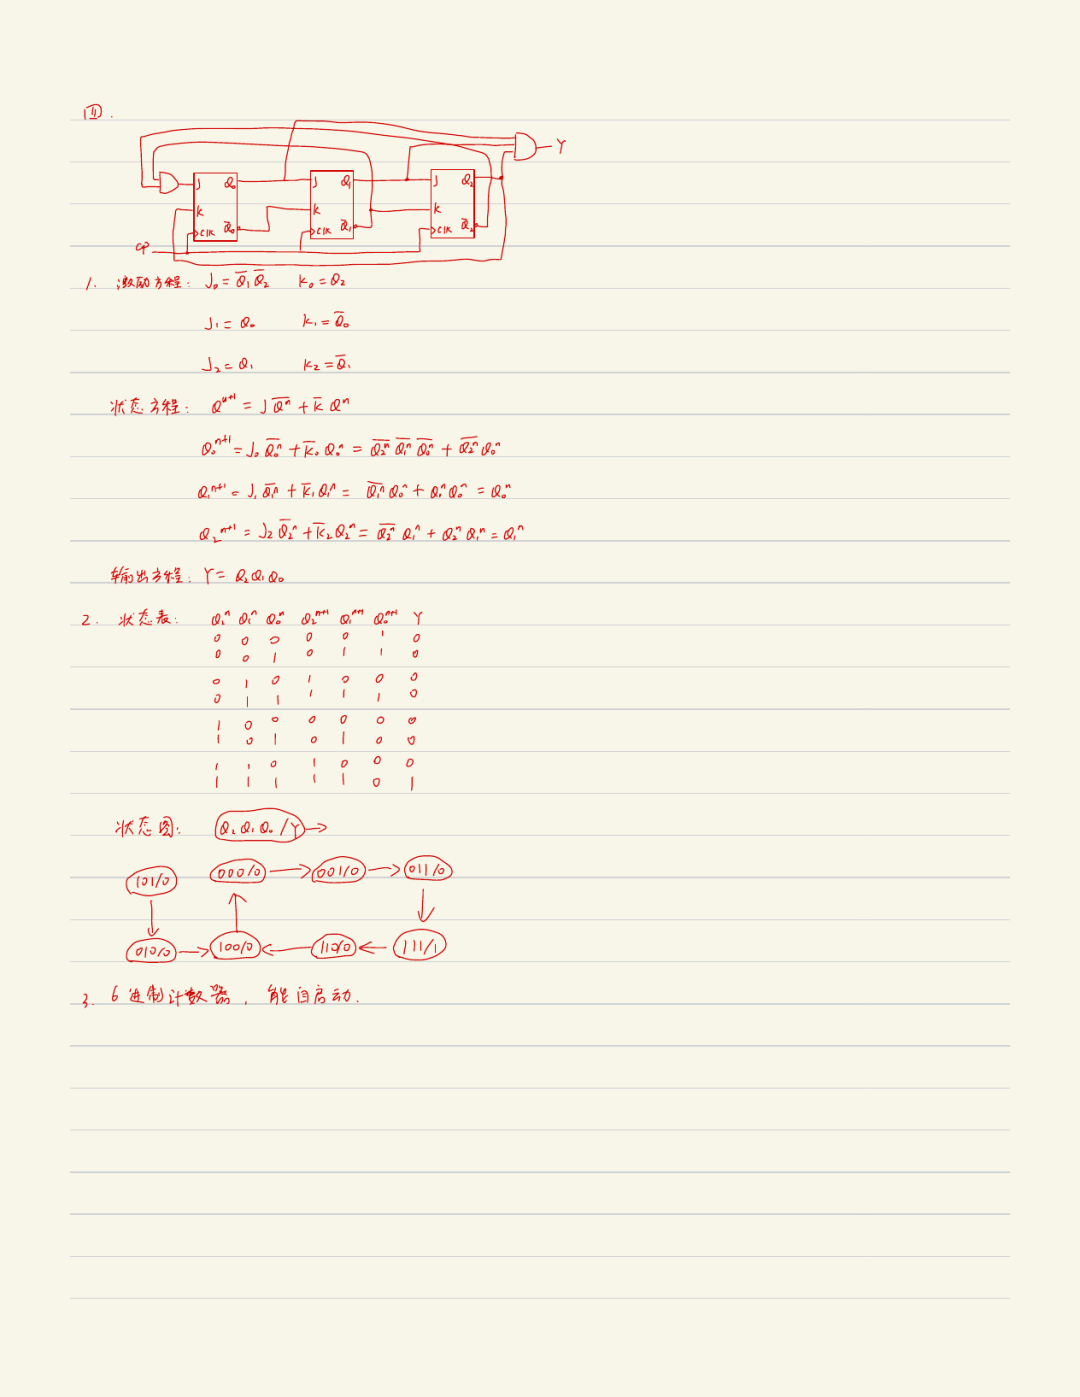 四.
J Q₀ J Q₁ J Q₂ Y
K K K
CLK Q̅₀ CLK Q̅₁ CLK Q̅₂
CP
1. 激励方程: J₀ = Q̅₁ Q̅₂ K₀ = Q₂
J₁ = Q₀ K₁ = Q̅₀
J₂ = Q₁ K₂ = Q̅₁
状态方程: Qⁿ⁺¹ = J Q̅ⁿ + K̅ Qⁿ
Q₀ⁿ⁺¹ = J₀ Q̅₀ⁿ + K̅₀ Q₀ⁿ = Q̅₂ⁿ Q̅₁ⁿ Q̅₀ⁿ + Q̅₂ⁿ Q₀ⁿ
Q₁ⁿ⁺¹ = J₁ Q̅₁ⁿ + K̅₁ Q₁ⁿ = Q̅₁ⁿ Q₀ⁿ + Q₁ⁿ Q₀ⁿ = Q₀ⁿ
Q₂ⁿ⁺¹ = J₂ Q̅₂ⁿ + K̅₂ Q₂ⁿ = Q̅₂ⁿ Q₁ⁿ + Q₂ⁿ Q₁ⁿ = Q₁ⁿ
输出方程: Y = Q₂ Q₁ Q₀
2. 状态表: Q₂ⁿ Q₁ⁿ Q₀ⁿ Q₂ⁿ⁺¹ Q₁ⁿ⁺¹ Q₀ⁿ⁺¹ Y
0 0 0 0 0 1 0
0 0 1 0 1 1 0
0 1 0 1 0 0 0
0 1 1 1 1 1 0
1 0 0 0 0 0 0
1 0 1 0 1 0 0
1 1 0 1 0 0 0
1 1 1 1 1 0 1
状态图: Q₂ Q₁ Q₀ / Y →
101/0 000/0 → 001/0 → 011/0
010/0 → 100/0 ← 110/0 ← 111/1
3. 6进制计数器, 能自启动.